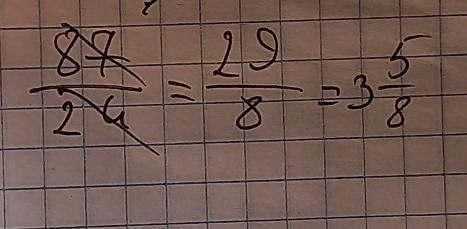 87/24 = 29/8 = 3 5/8